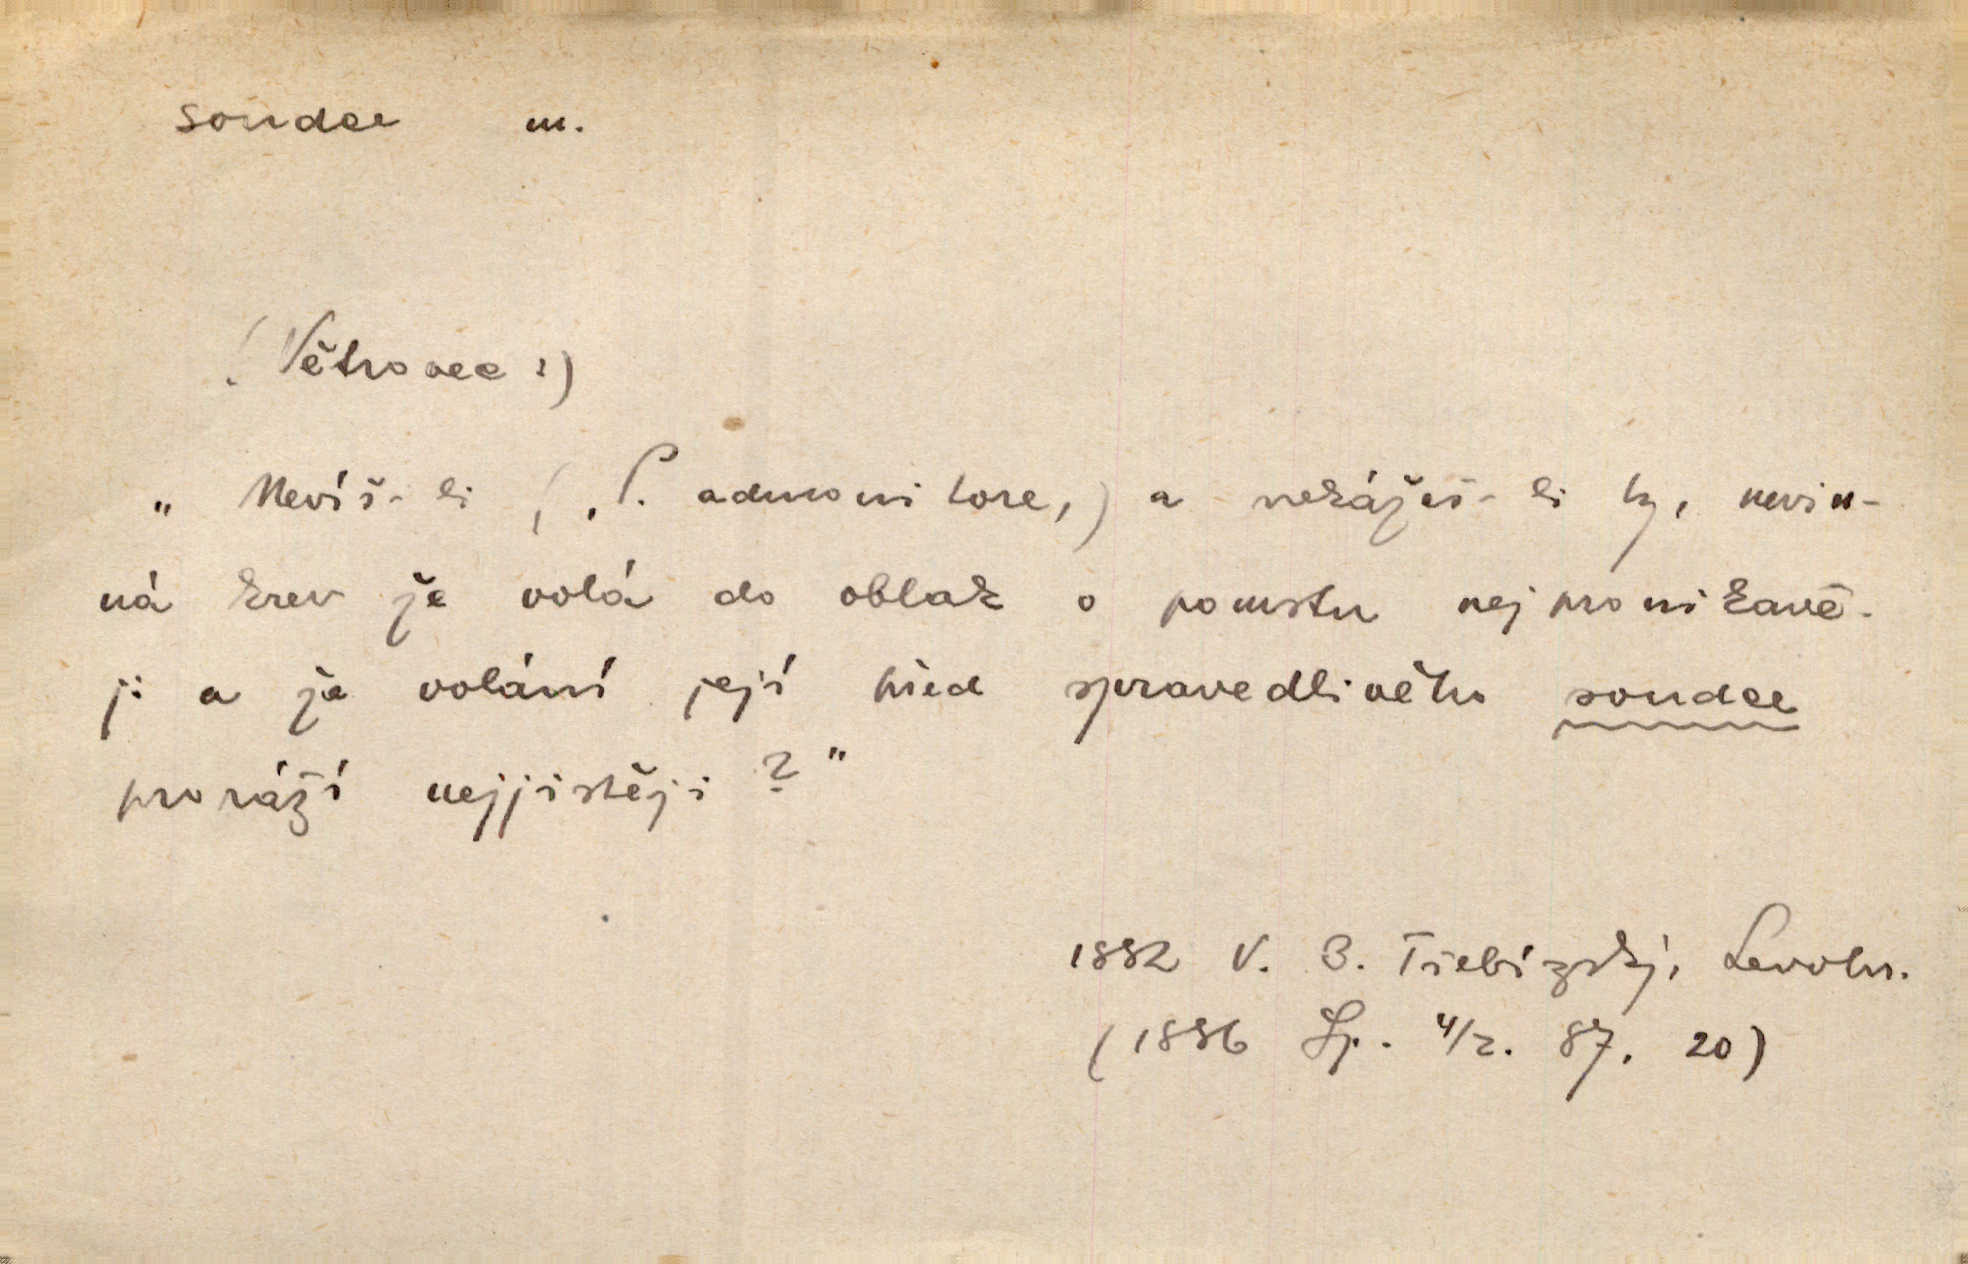 soudce m.
(Větrovec:)
„Nevíš-li (, P. admonitore,) a nekážeš-li ty, nevin-
ná krev že volá do oblak o pomstu nejpronikavě-
ji a že volání její před spravedlivého soudce
proráží nejjistěji?"
1882 V. B. Třebízský, Levohr.
(1886 Sp. 4/2. 87, 20)